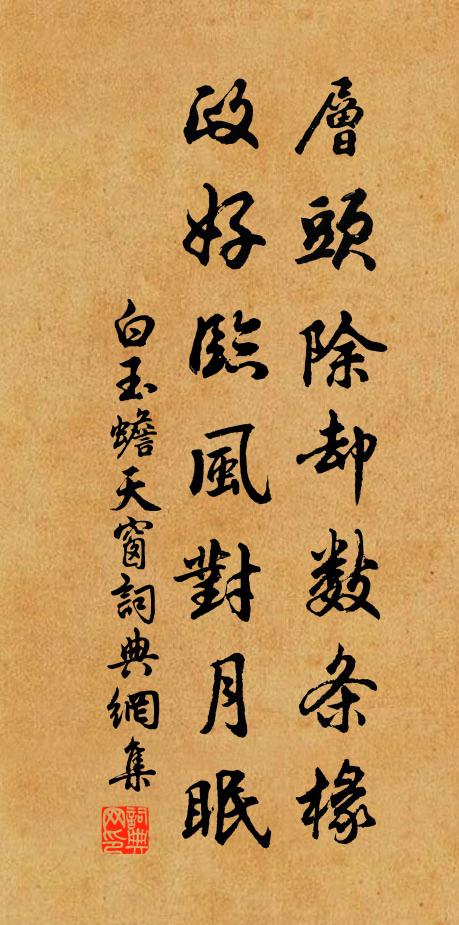 層頭除却数条椽
政好臨風對月眠
白玉蟾天窗詞典網集
詞典網印